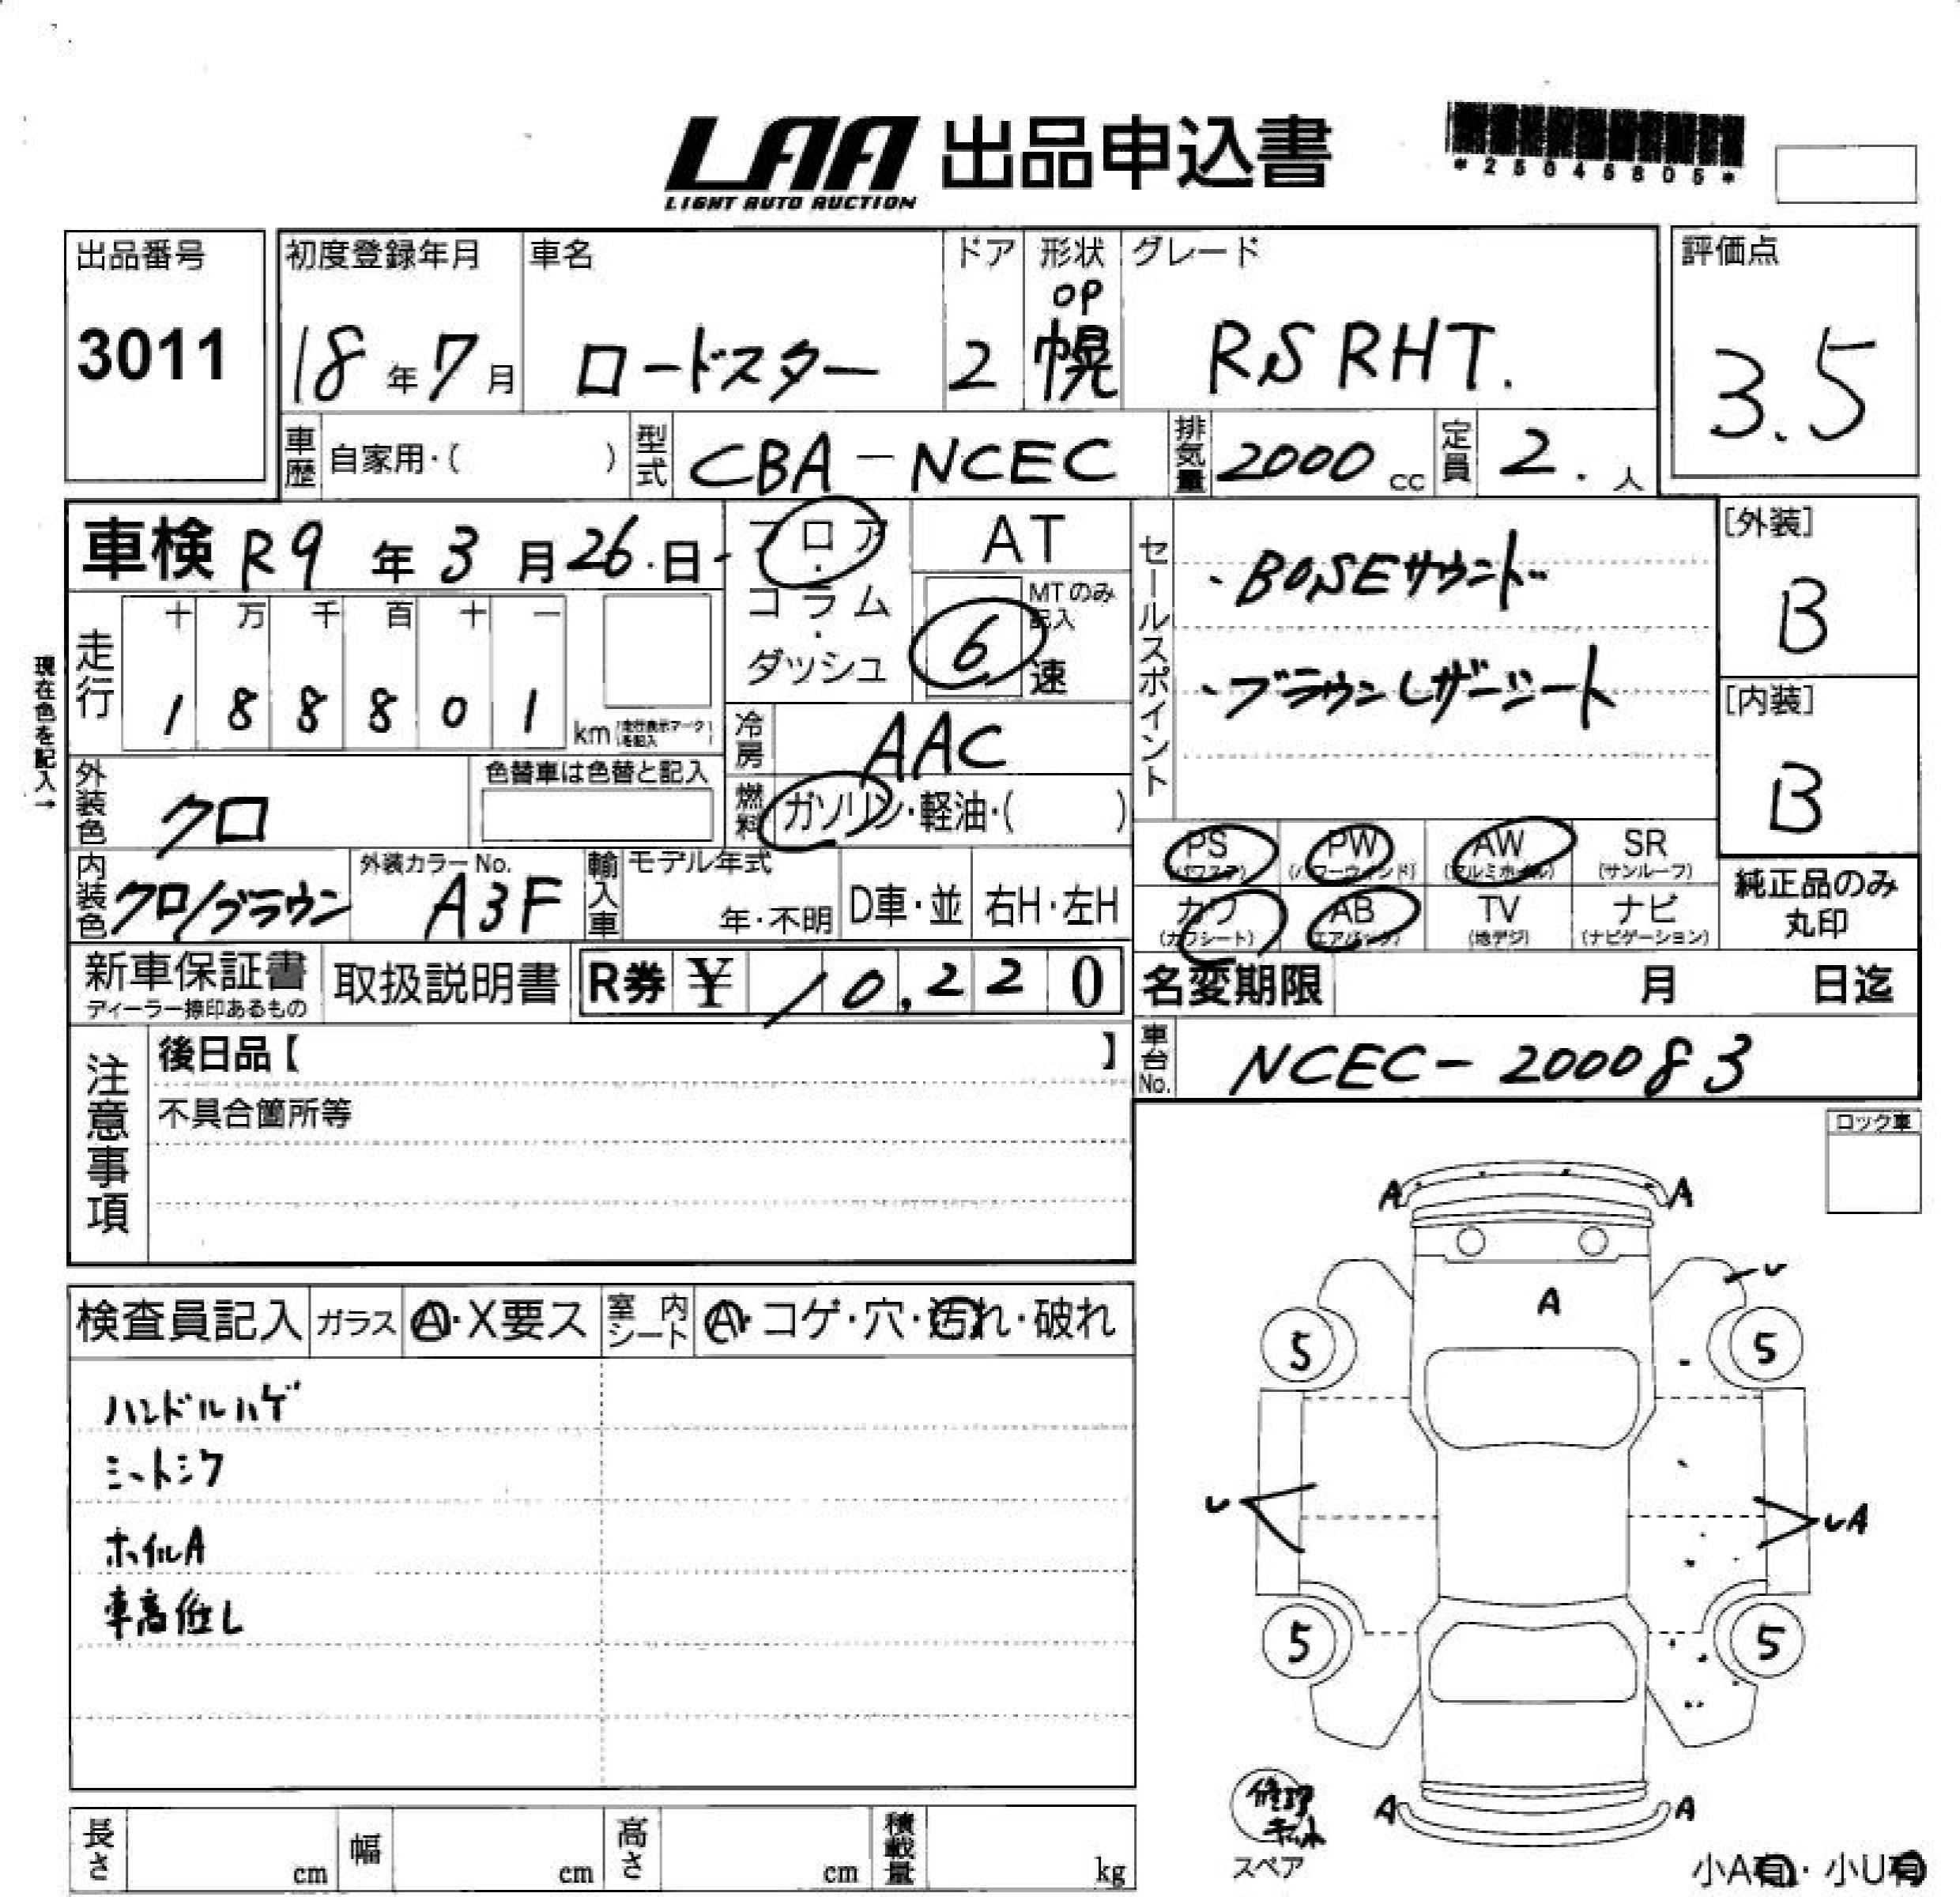 LAA 出品申込書
LIGHT AUTO AUCTION
*25045805*
出品番号
3011
初度登録年月
18年7月
車名
ロードスター
ドア
2
形状
OP
幌
グレード
RS RHT.
評価点
3.5
車歴 自家用・( )
型式 CBA-NCEC
排気量 2000cc
定員 2.人
車検 R9年3月26.日
フロア・コラム・ダッシュ
AT
MTのみ記入
6速
セールスポイント
・BOSEサウンド
・ブラウンレザーシート
[外装]
B
[内装]
B
現在色を記入→
走行
十万千百十一
188801km
(走行表示マークを記入)
冷房 AAC
燃料 ガソリン・軽油・( )
外装色 クロ
色替車は色替と記入
内装色 クロ/ブラウン
外装カラーNo.
A3F
輸入車
モデル年式
年・不明
D車・並
右H・左H
PS(パワステ)
PW(パワーウィンド)
AW(アルミホイル)
SR(サンルーフ)
カワ(カワシート)
AB(エアバック)
TV(地デジ)
ナビ(ナビゲーション)
純正品のみ
丸印
新車保証書
ディーラー捺印あるもの
取扱説明書
R券 ¥ 10,220
名変期限 月 日迄
車台No. NCEC-200083
注意事項
後日品【 】
不具合箇所等
ロック車
検査員記入
ガラス Ⓐ・X要ス
室内シート Ⓐ・コゲ・穴・汚れ・破れ
ハンドルハゲ
シートシワ
ホイルA
車高低し
A A
A
レ
5 5
レ レA
5 5
A A
修理
キット
スペア
小A有・小U有
長さ cm
幅 cm
高さ cm
積載量 kg